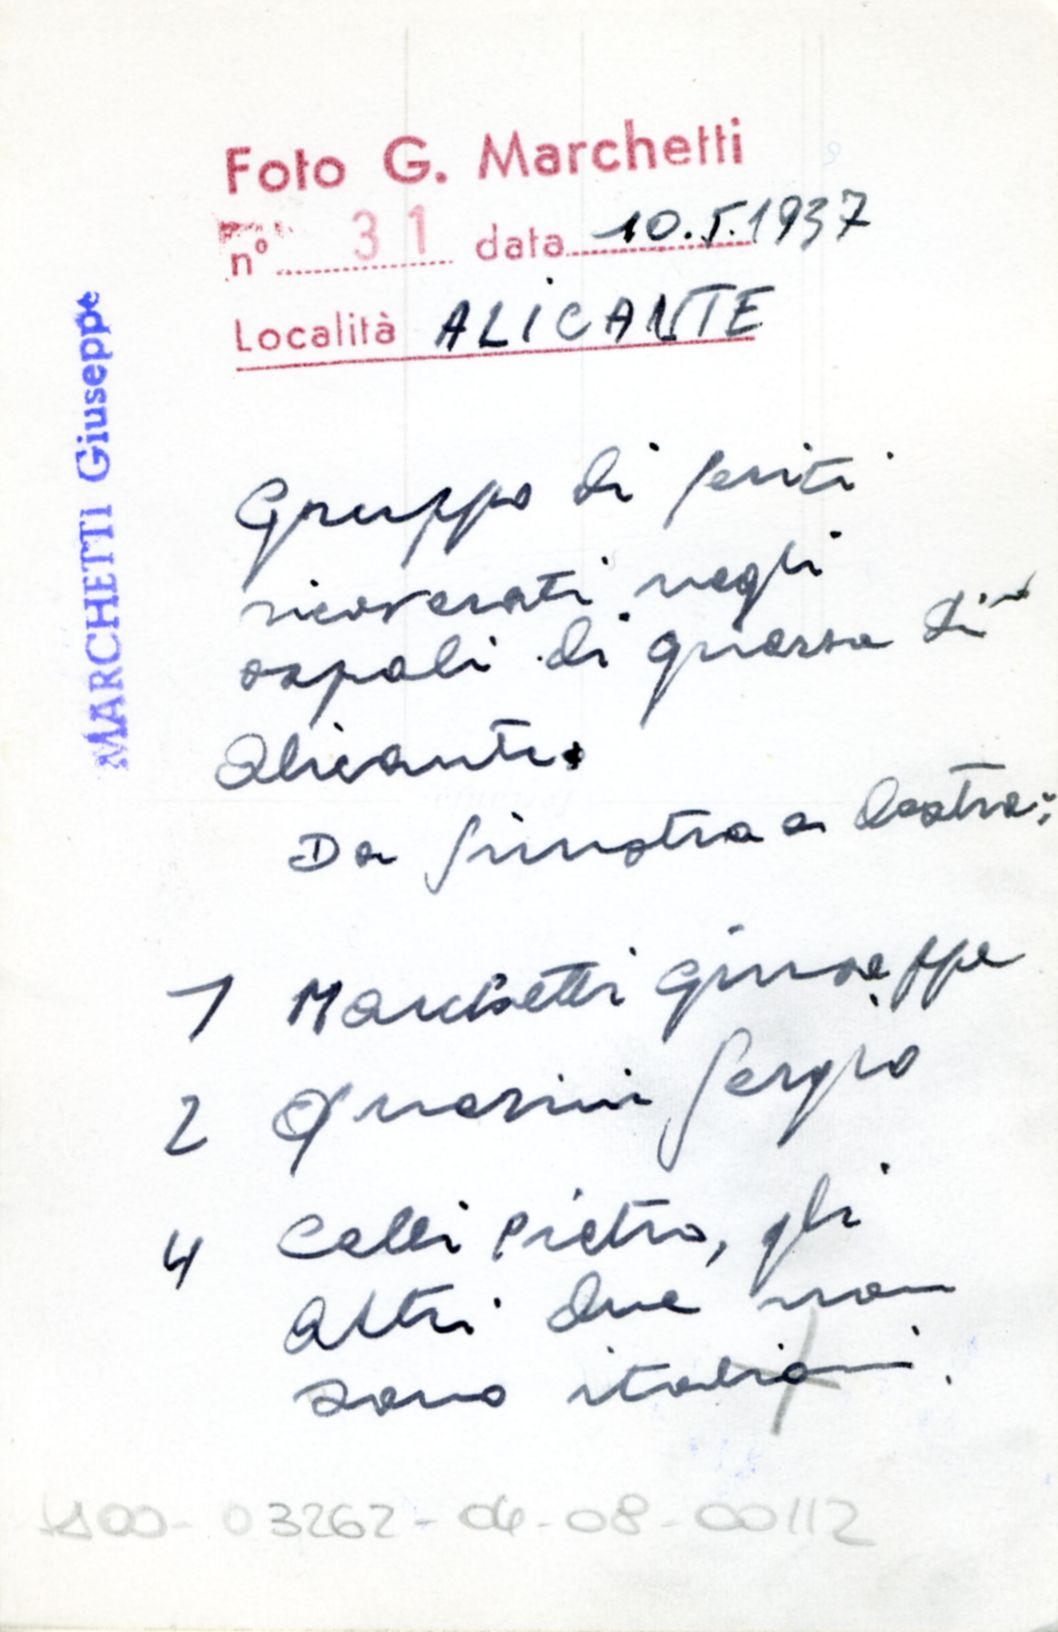 Foto G. Marchetti
n° 31 data 10.5.1937
Località ALICANTE
MARCHETTI Giuseppe
Gruppo di feriti
ricoverati negli
ospali di guerra di
Alicante.
Da sinistra a destra:
1 Marchetti Giuseppe
2 Quarini Sergio
4 Celli Pietro, gli
altri due non
sono italiani.
03262-04-08-00112